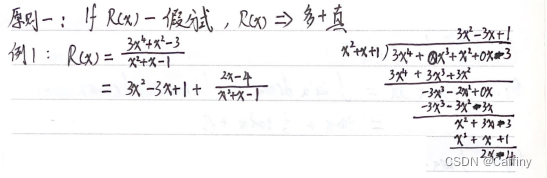 原则一：If R(x)-假分式，R(x) ⇒ 多+真
例1：R(x) = (3x⁴+x²-3)/(x²+x-1)
= 3x²-3x+1 + (2x-4)/(x²+x-1)
3x²-3x+1
x²+x+1 ) 3x⁴+0x³+x²+0x-3
3x⁴+3x³+3x²
-3x³-2x²+0x
-3x³-3x²-3x
x²+3x-3
x²+x+1
2x-4
CSDN @Caffiny